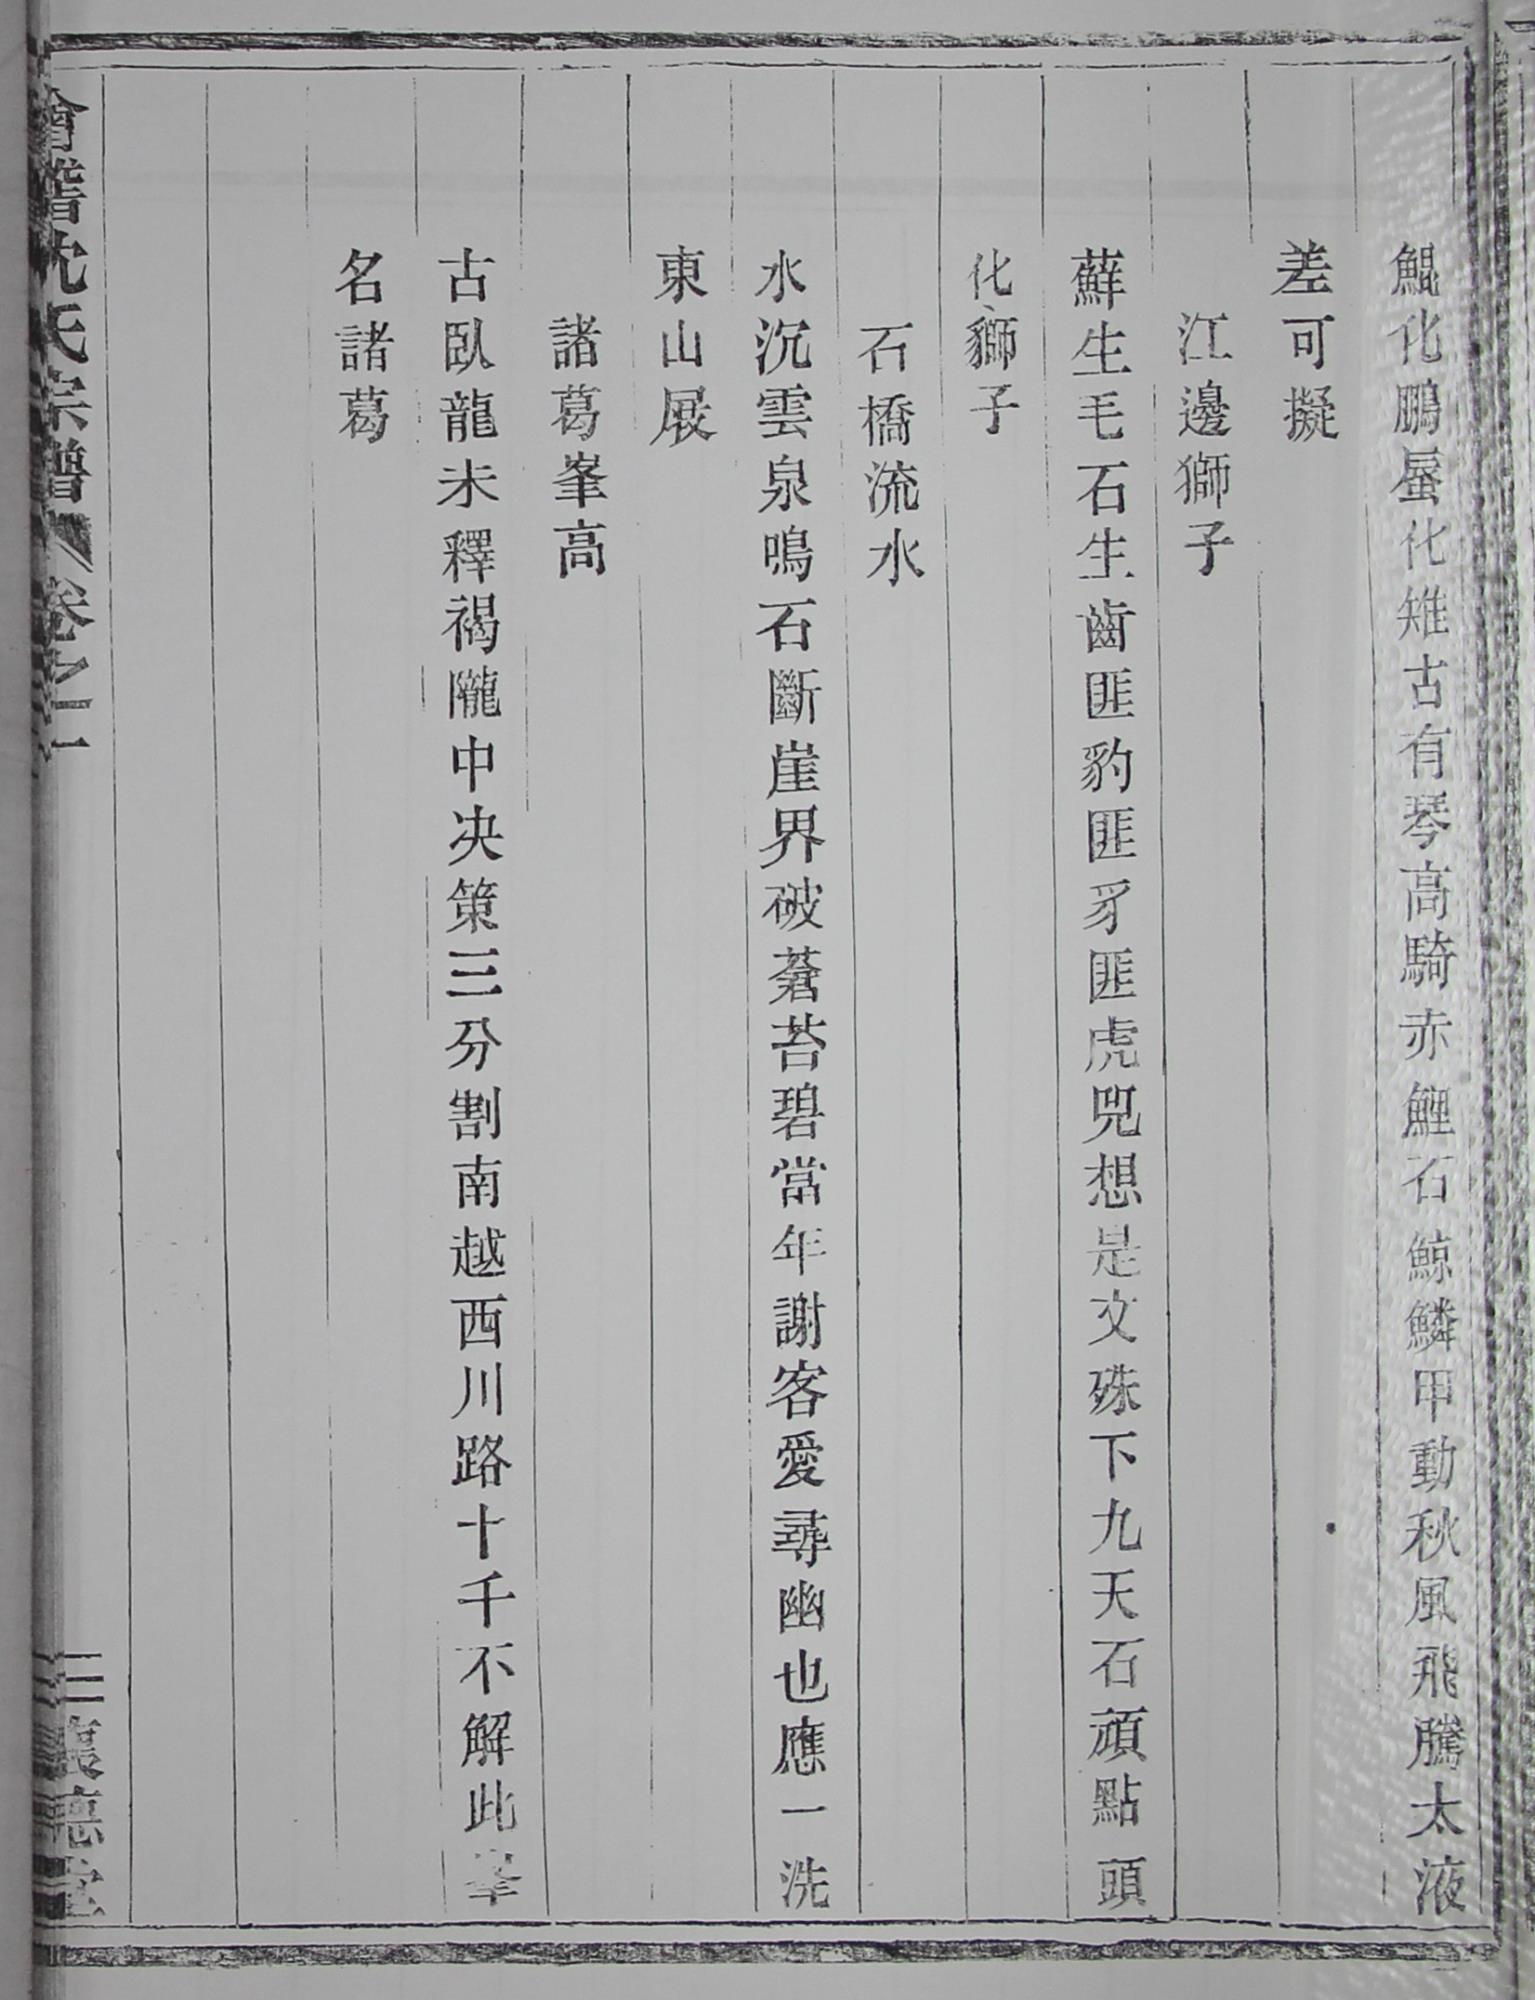 鯤化鵬蜃化雉古有琴高騎赤鯉石鯨鱗甲動秋風飛騰太液
差可擬
江邊獅子
蘚生毛石生齒匪豹匪豸匪虎兕想是文殊下九天石頑點頭
化獅子
石橋流水
水沉雲泉鳴石斷崖界破蒼苔碧當年謝客愛尋幽也應一洗
東山屐
諸葛峯高
古臥龍未釋褐隴中决策三分割南越西川路十千不解此峯
名諸葛
會稽沈氏宗譜 卷之一